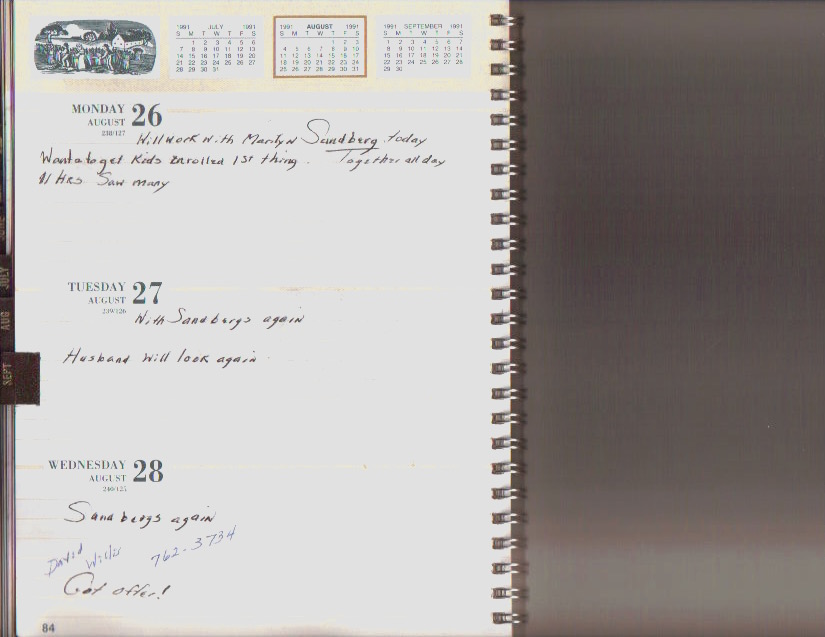 1991 JULY 1991
S M T W T F S
1 2 3 4 5 6
7 8 9 10 11 12 13
14 15 16 17 18 19 20
21 22 23 24 25 26 27
28 29 30 31
1991 AUGUST 1991
S M T W T F S
1 2 3
4 5 6 7 8 9 10
11 12 13 14 15 16 17
18 19 20 21 22 23 24
25 26 27 28 29 30 31
1991 SEPTEMBER 1991
S M T W T F S
1 2 3 4 5 6 7
8 9 10 11 12 13 14
15 16 17 18 19 20 21
22 23 24 25 26 27 28
29 30
MONDAY 26
AUGUST
238/127
Will work with Marilyn Sandberg today
Wants to get Kids Enrolled 1st thing. Together all day
11 Hrs Saw many
TUESDAY 27
AUGUST
239/126
With Sandbergs again
Husband will look again
WEDNESDAY 28
AUGUST
240/125
Sandbergs again
David Willis 762-3734
Got offer!
84
JULY
AUG
SEPT